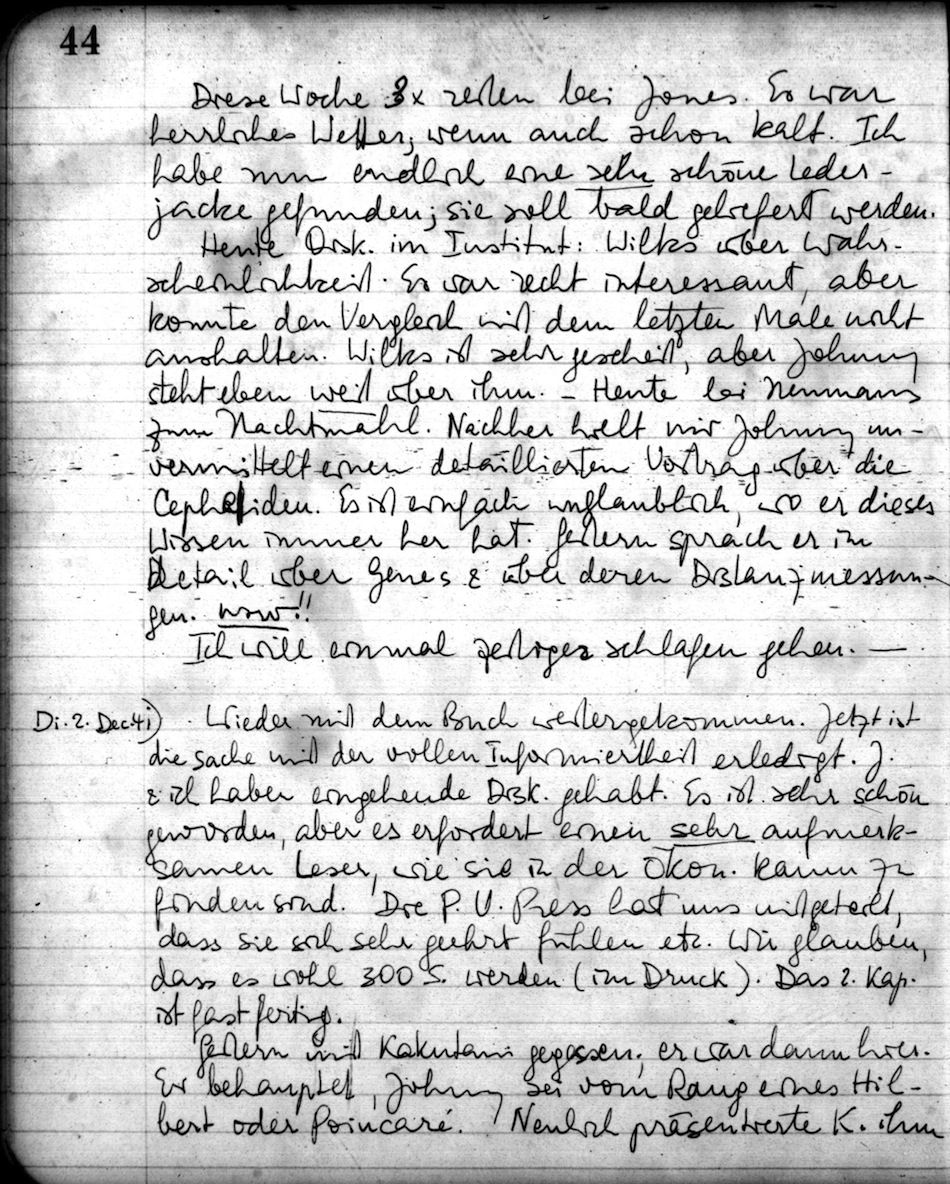 44
Diese Woche 3x reiten bei Jones. Es war
herrliches Wetter, wenn auch schon kalt. Ich
habe nun endlich eine sehr schöne Leder-
jacke gefunden; sie soll bald geliefert werden.
Heute Disk. im Institut: Wilks über Wahr-
scheinlichkeit. Es war recht interessant, aber
konnte den Vergleich mit dem letzten Male nicht
aushalten. Wilks ist sehr gescheit, aber Johnny
steht eben weit über ihm. – Heute bei Neumanns
zum Nachtmahl. Nachher hielt mir Johnny un-
vermittelt einen detaillierten Vortrag über die
Cepheiden. Es ist einfach unglaublich, wo er dieses
Wissen immer her hat. Gestern sprach er im
Detail über Genes & über deren Distanzmessun-
gen. usw!!
Ich will einmal zeitiger schlafen gehen. —
Di. 2. Dec. 41) Wieder mit dem Buch weitergekommen. Jetzt ist
die Sache mit der vollen Informiertheit erledigt. J.
& ich haben eingehende Disk. gehabt. Es ist sehr schön
geworden, aber es erfordert einen sehr aufmerk-
samen Leser, wie sie in der Ökon. kaum zu
finden sind. Die P. U. Press hat uns mitgeteilt,
dass sie sich sehr geehrt fühlen etc. Wir glauben,
dass es wohl 300 S. werden (im Druck). Das 2. Kap.
ist fast fertig.
Gestern mit Kakutani gegessen; er war dann hier.
Er behauptet, Johnny sei vom Rang eines Hil-
bert oder Poincaré. Neulich präsentierte K. ihm